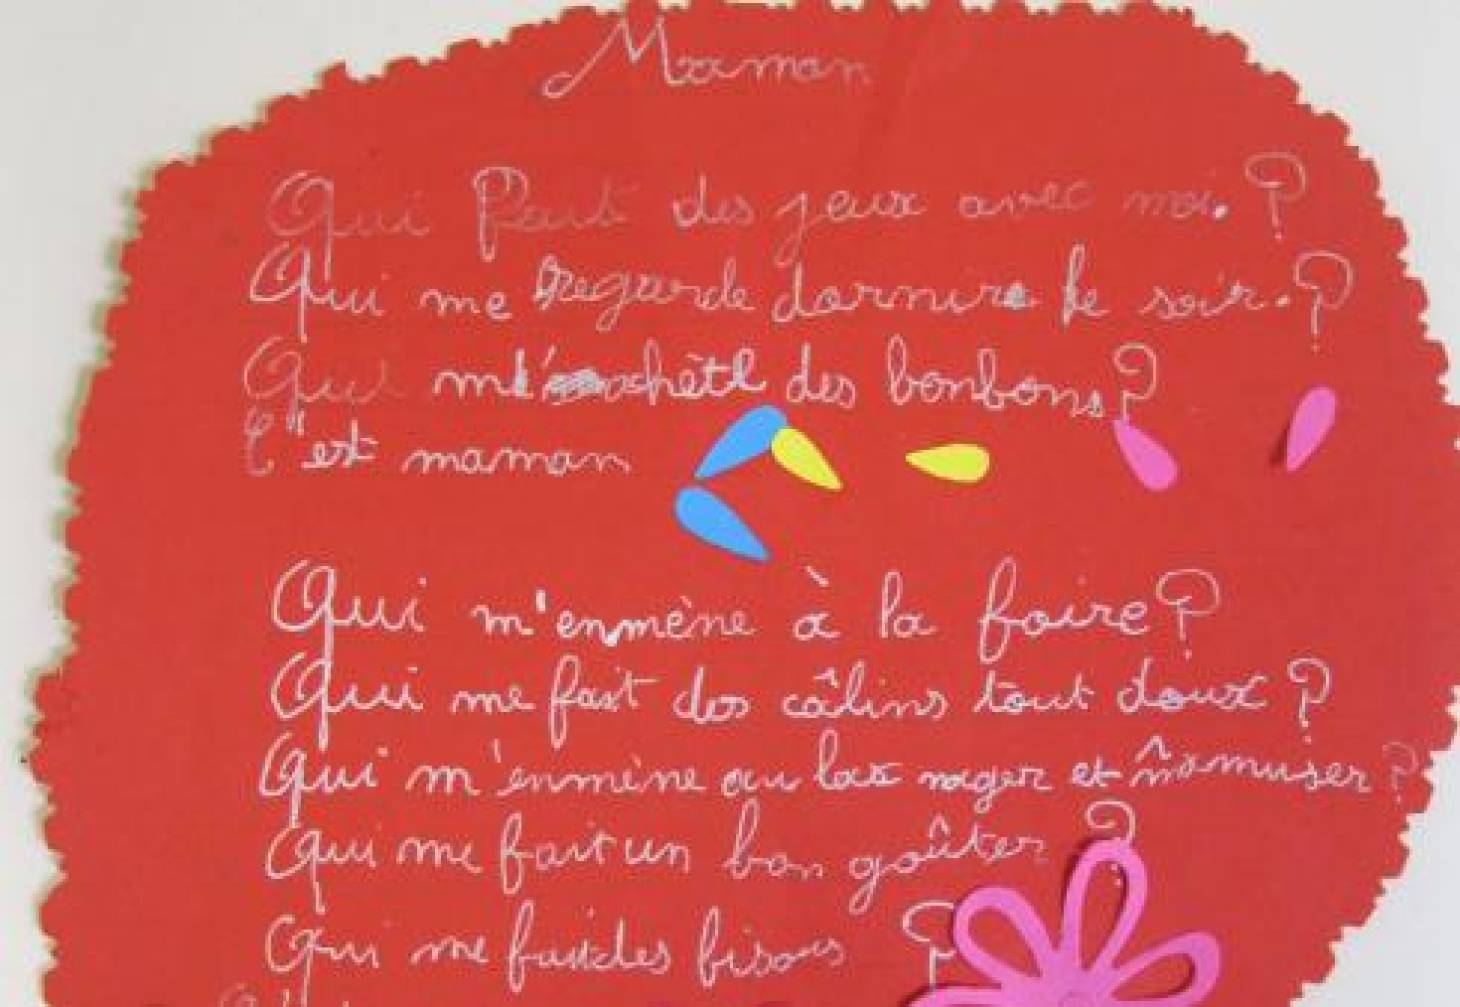 Maman
Qui Fait des jeux avec moi.?
Qui me regarde dormire le soir.?
Qui m'achète des bonbons?
C"est maman
Qui m'enmène à la foire?
Qui me fait des câlins tout doux?
Qui m'enmène au lac nager et m'amuser?
Qui me fait un bon goûter?
Qui me fait des bisous ?